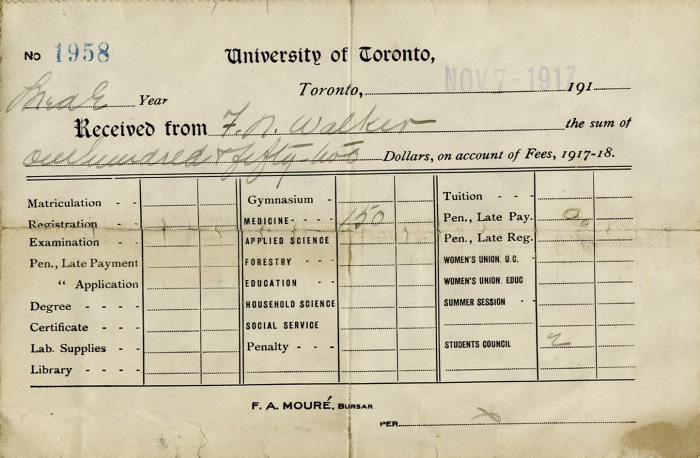 No 1958 University of Toronto,
Toronto, NOV 7 - 1917 191
Year
Received from F. N. Walker the sum of
one hundred & fifty-two Dollars, on account of Fees, 1917-18.
Matriculation - -
Registration - -
Examination - -
Pen., Late Payment
" Application
Degree - - - -
Certificate - - -
Lab. Supplies - -
Library - - - -
Gymnasium -
MEDICINE - - - - 150
APPLIED SCIENCE
FORESTRY - - -
EDUCATION - - -
HOUSEHOLD SCIENCE
SOCIAL SERVICE
Penalty - - -
Tuition - - -
Pen., Late Pay.
Pen., Late Reg.
WOMEN'S UNION. U.C. -
WOMEN'S UNION. EDUC
SUMMER SESSION - -
STUDENTS COUNCIL 2
F. A. MOURÉ, BURSAR
PER